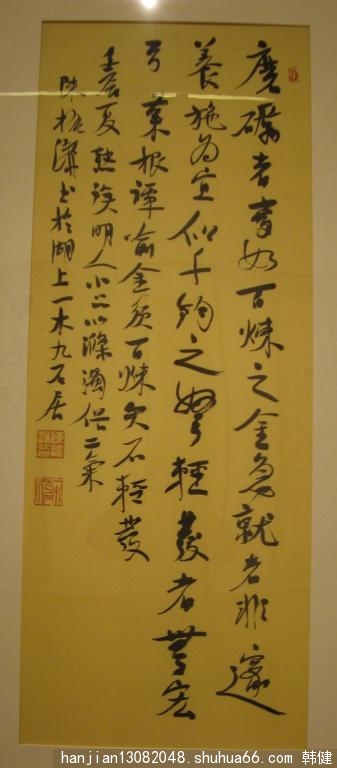 磨礪者當如百煉之金急就者非邃
養施為宜似千鈞之弩輕發者無宏
功菜根譚喻金須百煉矢不輕發
壬辰夏熱讀明人小品以滌濁俗二氣
陳振濂書於湖上一木九石居
hanjian13082048.shuhua66.com 韩健